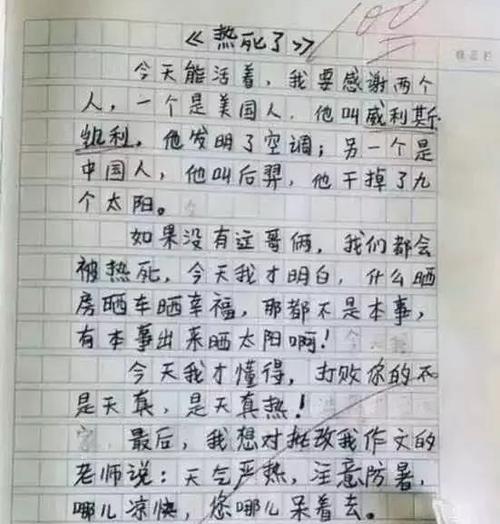 《热死了》 100
今天能活着，我要感谢两个
人，一个是美国人，他叫威利斯
凯利，他发明了空调；另一个是
中国人，他叫后羿，他干掉了九
个太阳。
如果没有这哥俩，我们都会
被热死，今天我才明白，什么晒
房晒车晒幸福，那都不是本事，
有本事出来晒太阳啊！
今天我才懂得，打败你的不
是天真，是天真热！
最后，我想对批改我作文的
老师说：天气严热，注意防暑，
哪儿凉快，您哪儿呆着去。